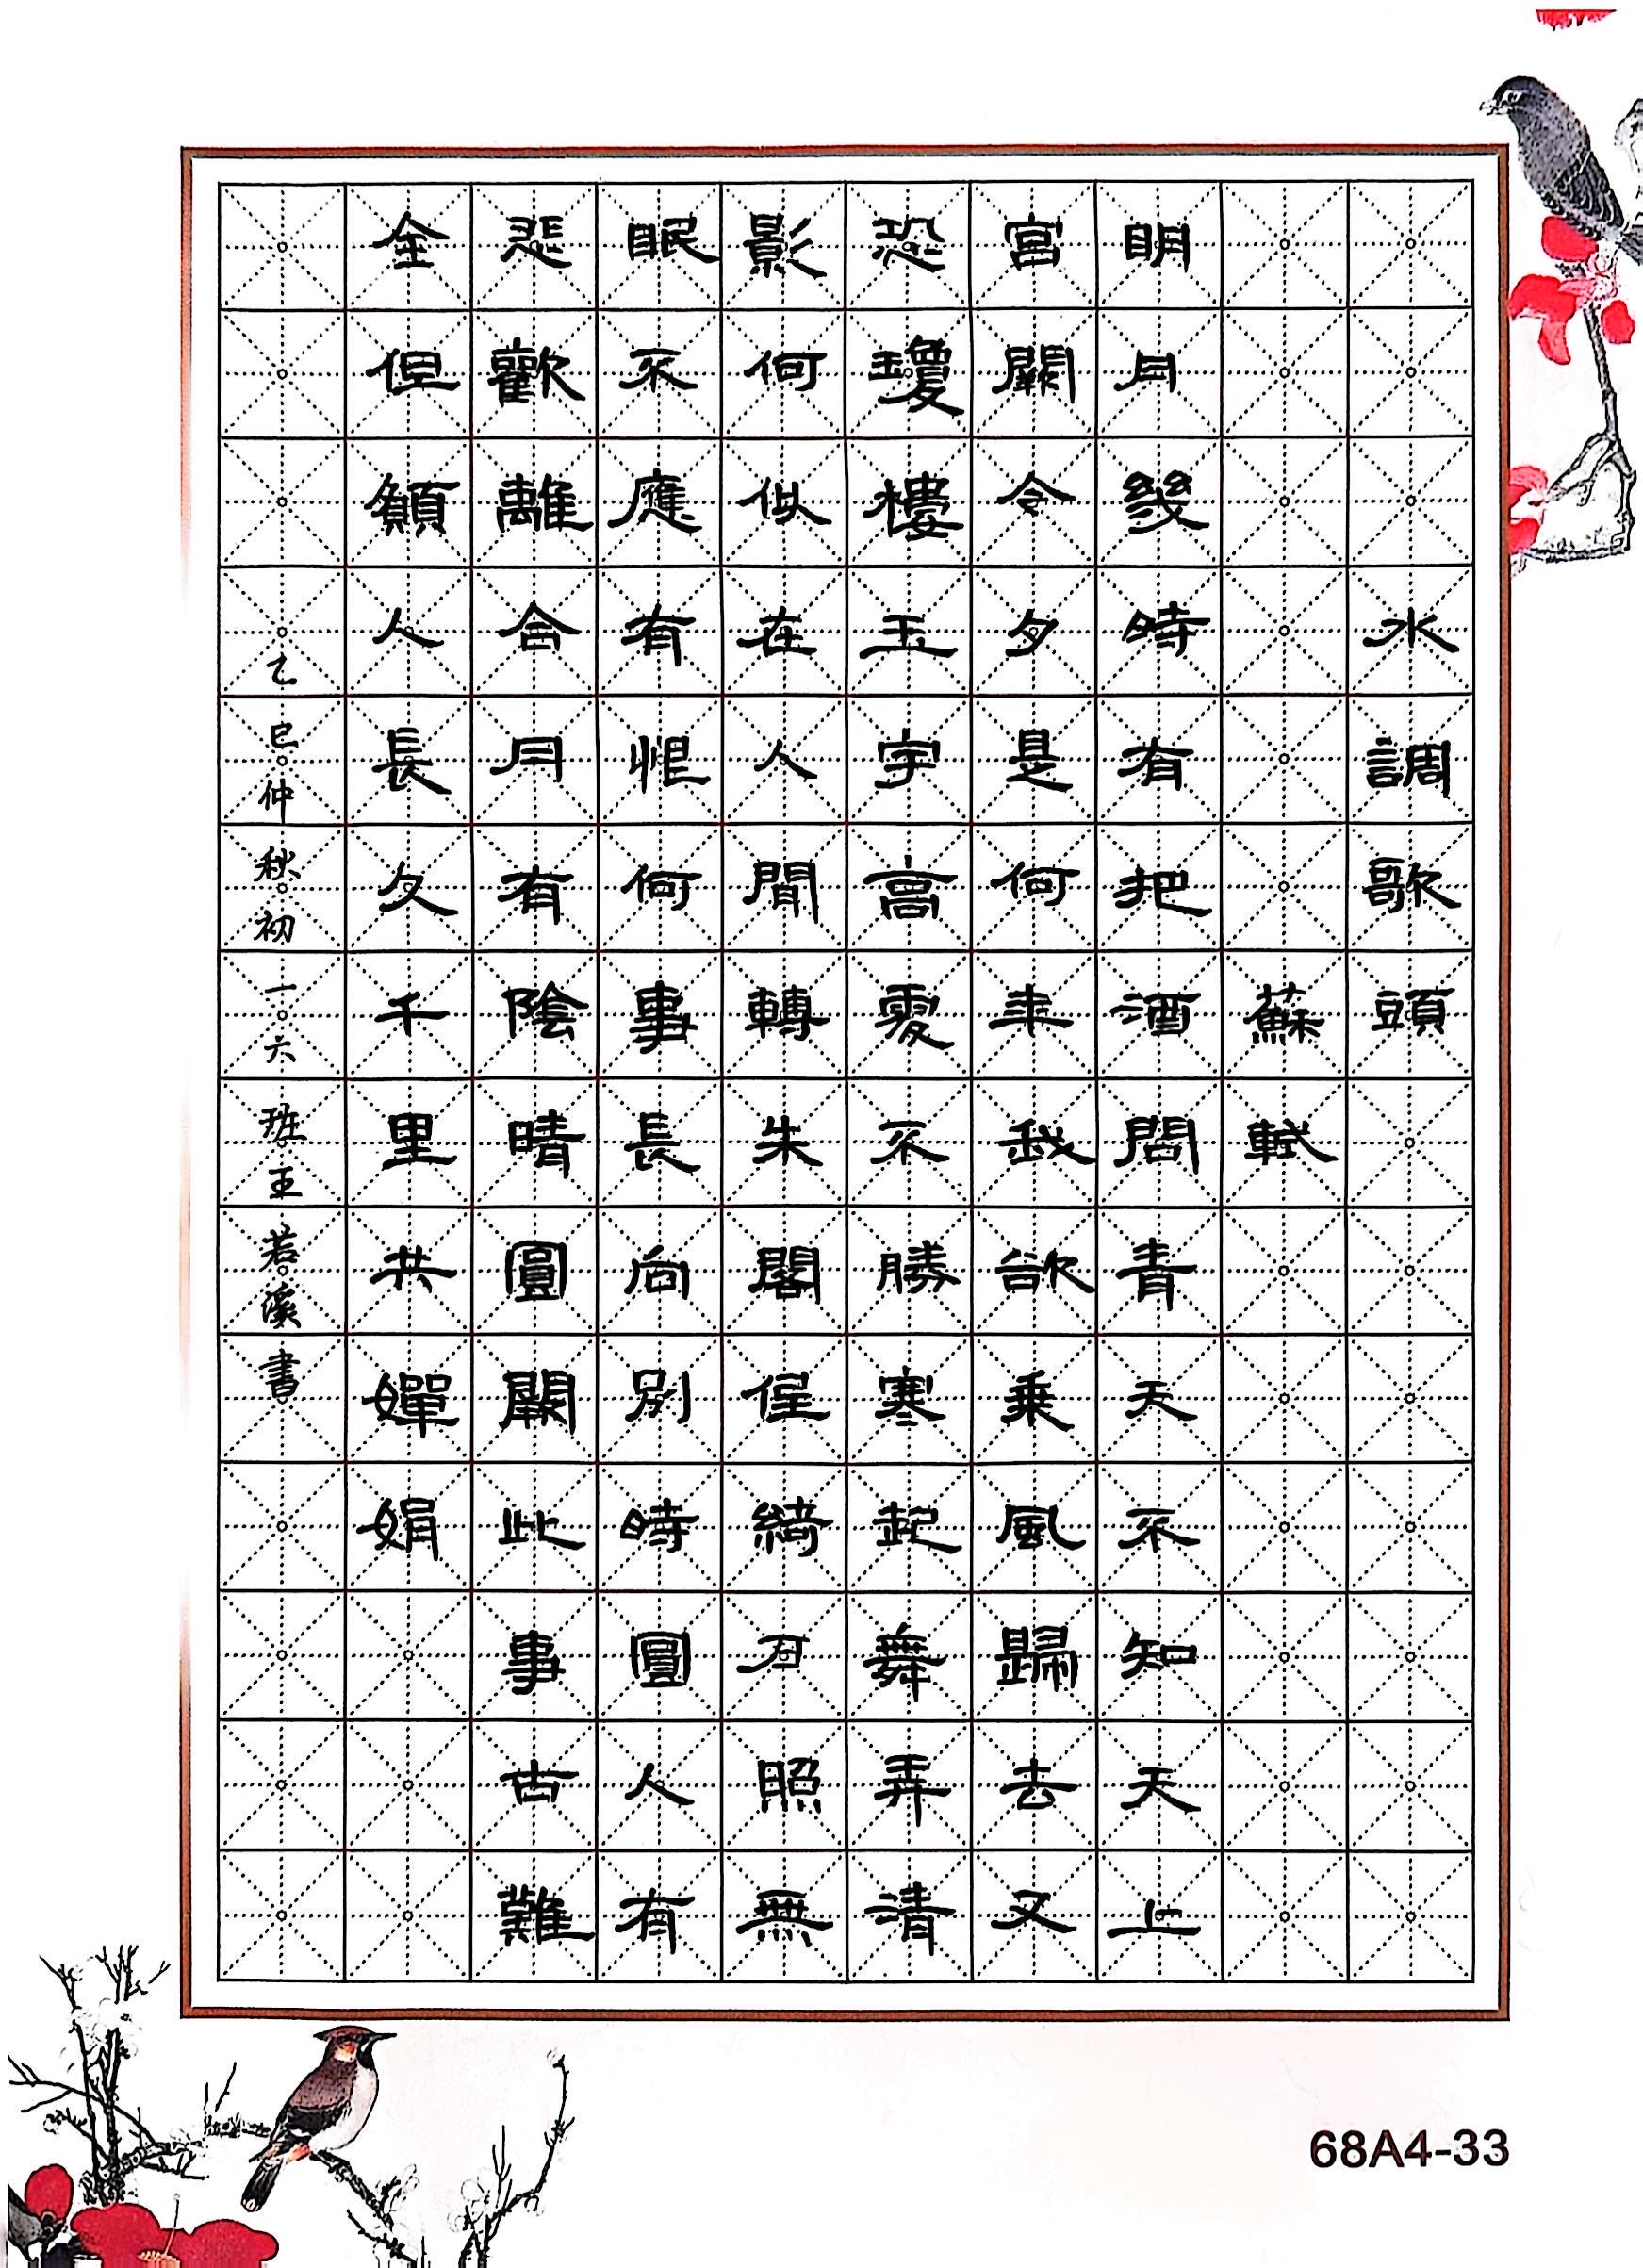 水調歌頭
蘇軾
明月幾時有把酒問青天不知天上
宮闕今夕是何年我欲乘風歸去又
恐瓊樓玉宇高處不勝寒起舞弄清
影何似在人間轉朱閣低綺戶照無
眠不應有恨何事長向別時圓人有
悲歡離合月有陰晴圓闕此事古難
全但願人長久千里共嬋娟
乙巳仲秋初一六班王若溪書
68A4-33